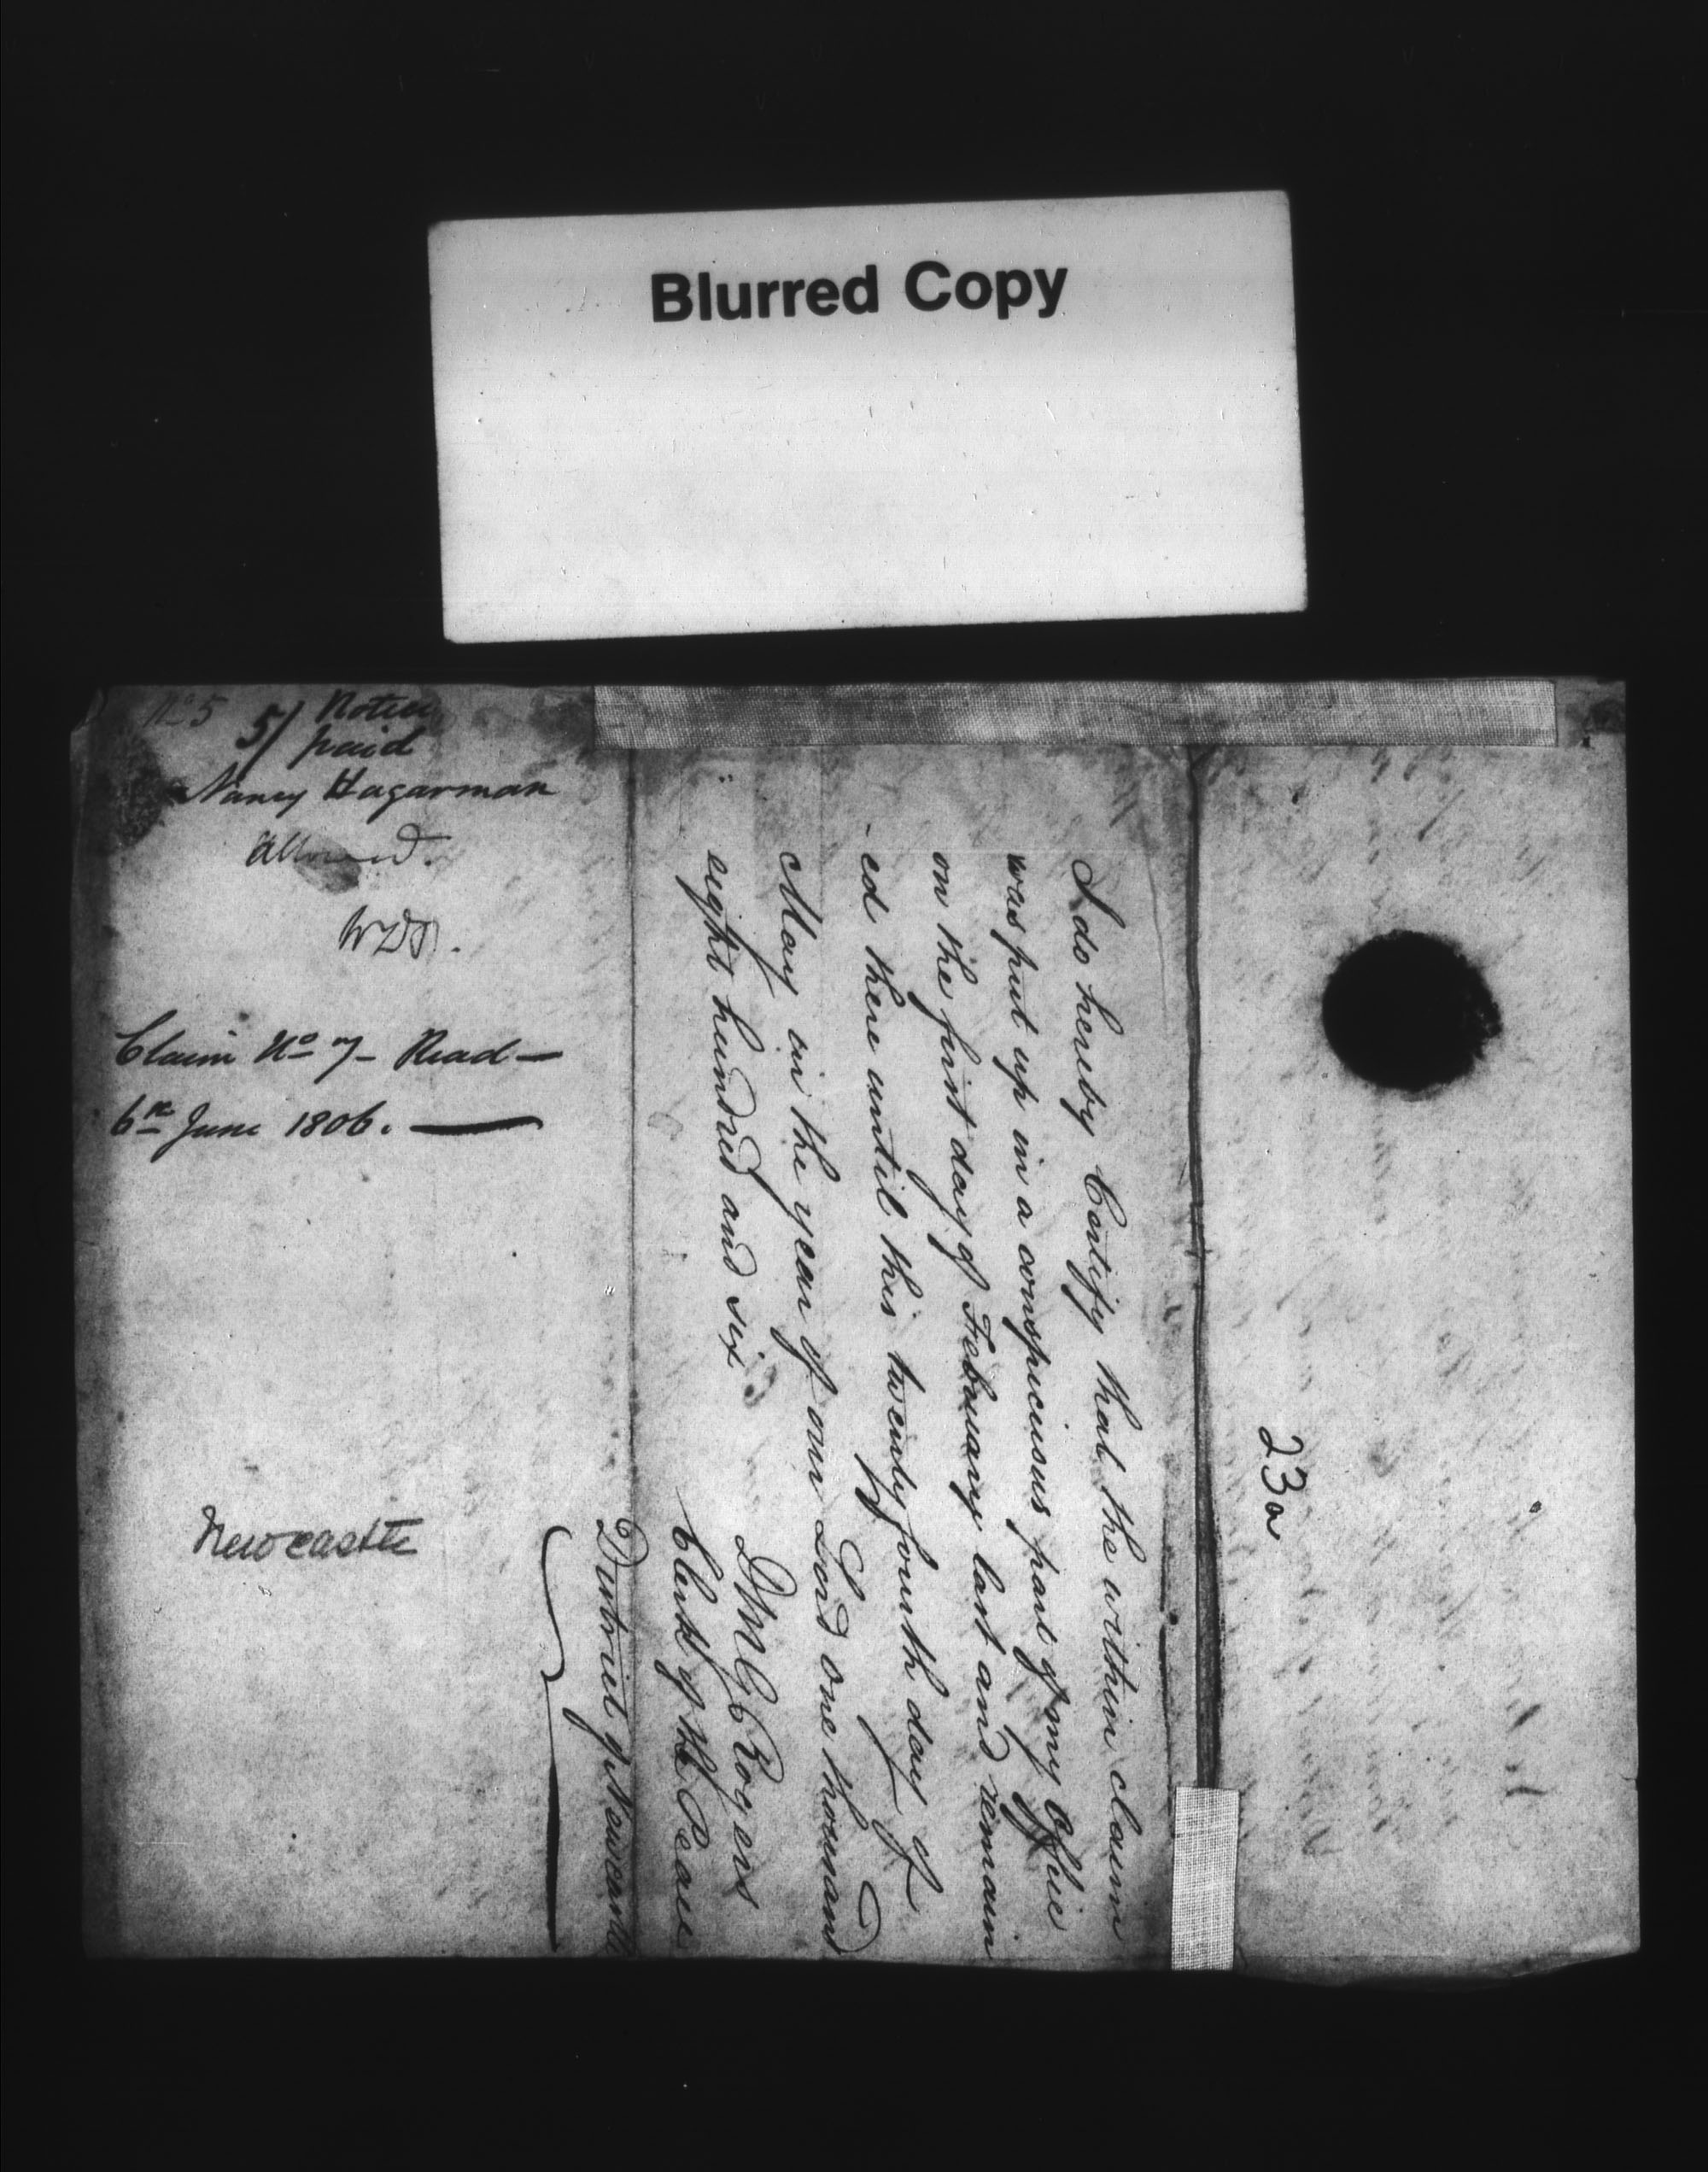 Blurred Copy
No 5
5/ Notice
paid
Nancy Hagarman
Allowed.
Claim No 7 - Read -
6th June 1806. -
Newcastle
I do hereby Certify that the within claim
was put up in a conspicuous part of my Office
on the first day of Febuary last and remain
-ed there until this twenty fourth day of
May in the year of our Lord one thousand
eight hundred and six
D McG Rogers
Clerk of the Peace
District of Newcastle
23a